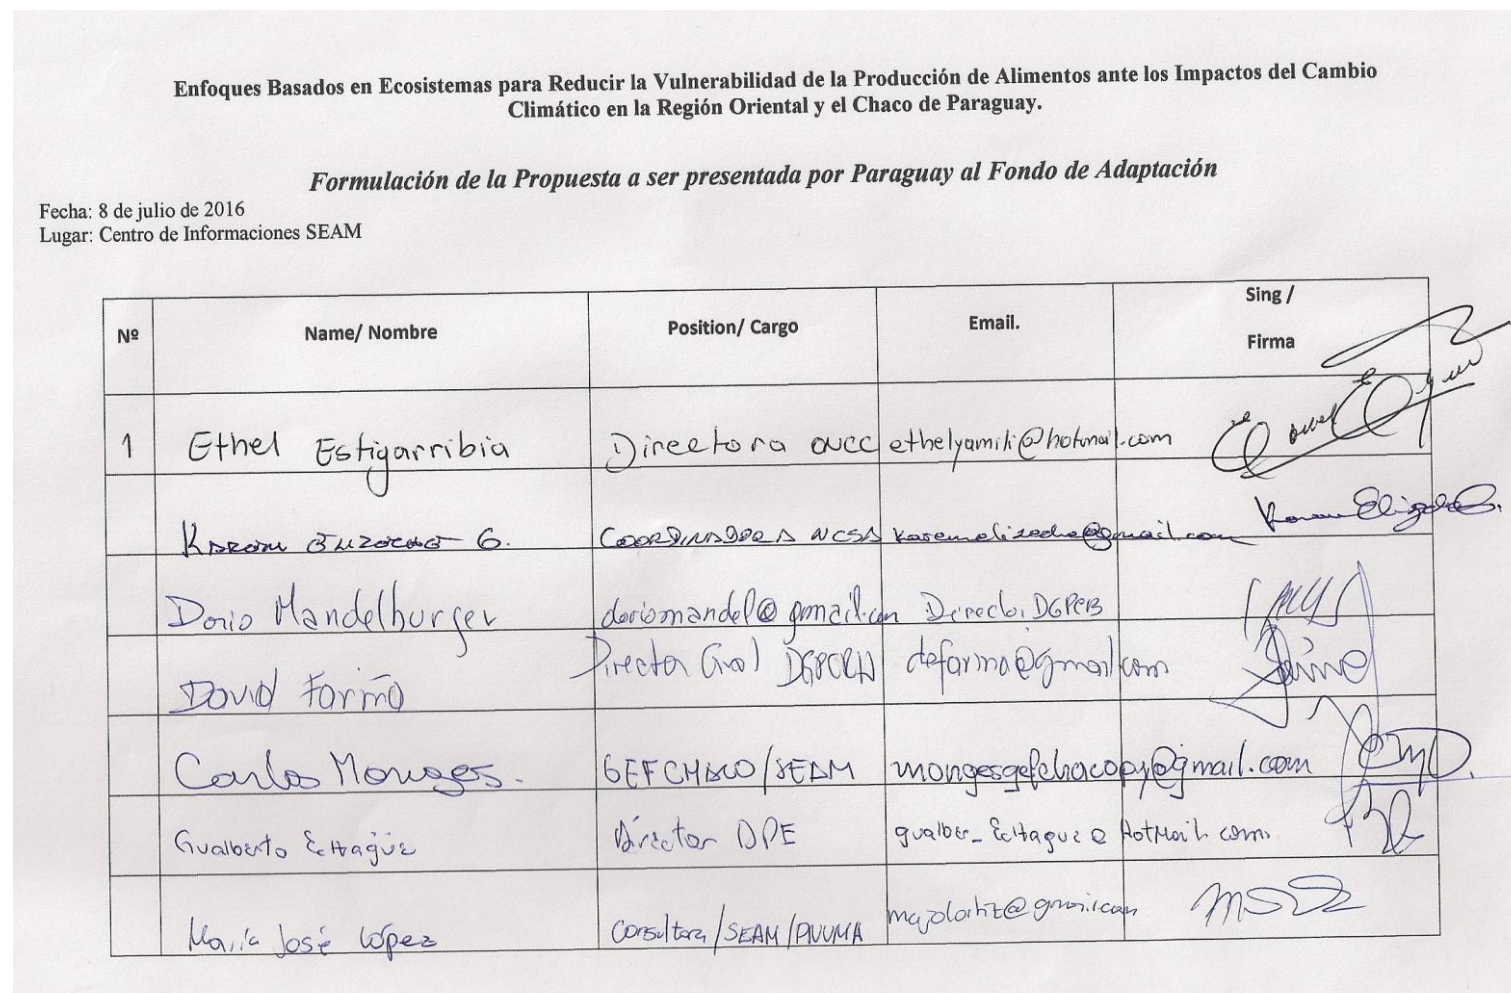 Enfoques Basados en Ecosistemas para Reducir la Vulnerabilidad de la Producción de Alimentos ante los Impactos del Cambio
Climático en la Región Oriental y el Chaco de Paraguay.
Formulación de la Propuesta a ser presentada por Paraguay al Fondo de Adaptación
Fecha: 8 de julio de 2016
Lugar: Centro de Informaciones SEAM
Nº Name/ Nombre Position/ Cargo Email. Sing /
Firma
1 Ethel Estigarribia Directora ONCC ethelyamili@hotmail.com
Karem Elizeche G. COORDINADORA NCSA karemelizeche@gmail.com
Dario Mandelburger dariomandel@gmail.com Director DGPCB
David Fariña Director Gral DGPCRH defarina@gmail.com
Carlos Monges. GEFCHACO/SEAM mongesgefchacopy@gmail.com
Gualberto Echagüe Director DPE gualber_Echague@HotMail.com.
María José López Consultora/SEAM/PNUMA